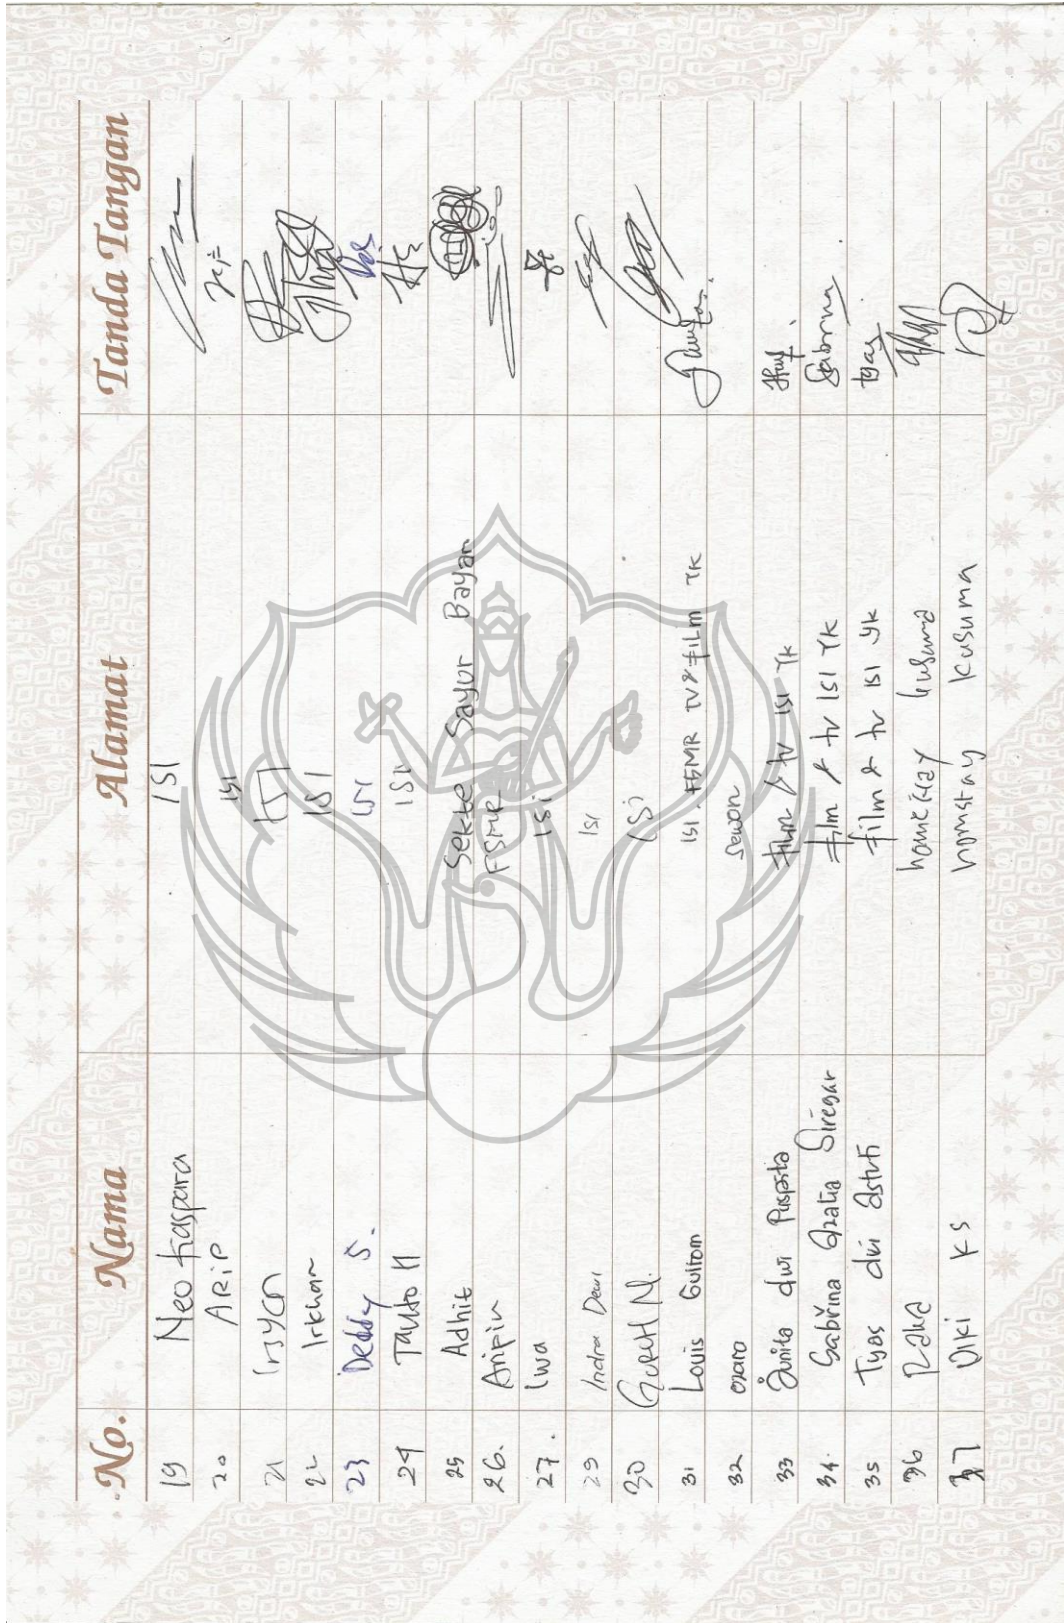 No. Nama Alamat Tanda Tangan
19 Neo Kaspara ISI
20 ARIP ISI
21 ISI
22 Irkham ISI
23 Deddy S. ISI
24 ISI
25 Adhit Sekte Sayur Bayam
26. Aripin FSMR
27. Iwa ISI
29 Indra Dewi ISI
30 ISI
31 Louis Gultom ISI. FSMR TV & FILM YK
32 ozaro Sewon
33 Junita dwi Puspita Film & tv ISI YK
34. Sabrina Qzatia Siregar Film & tv ISI YK Sabrina
35 Tyas dwi astuti film & tv ISI YK tyas
36 Raka homestay kusuma
37 Diki KS homstay kusuma